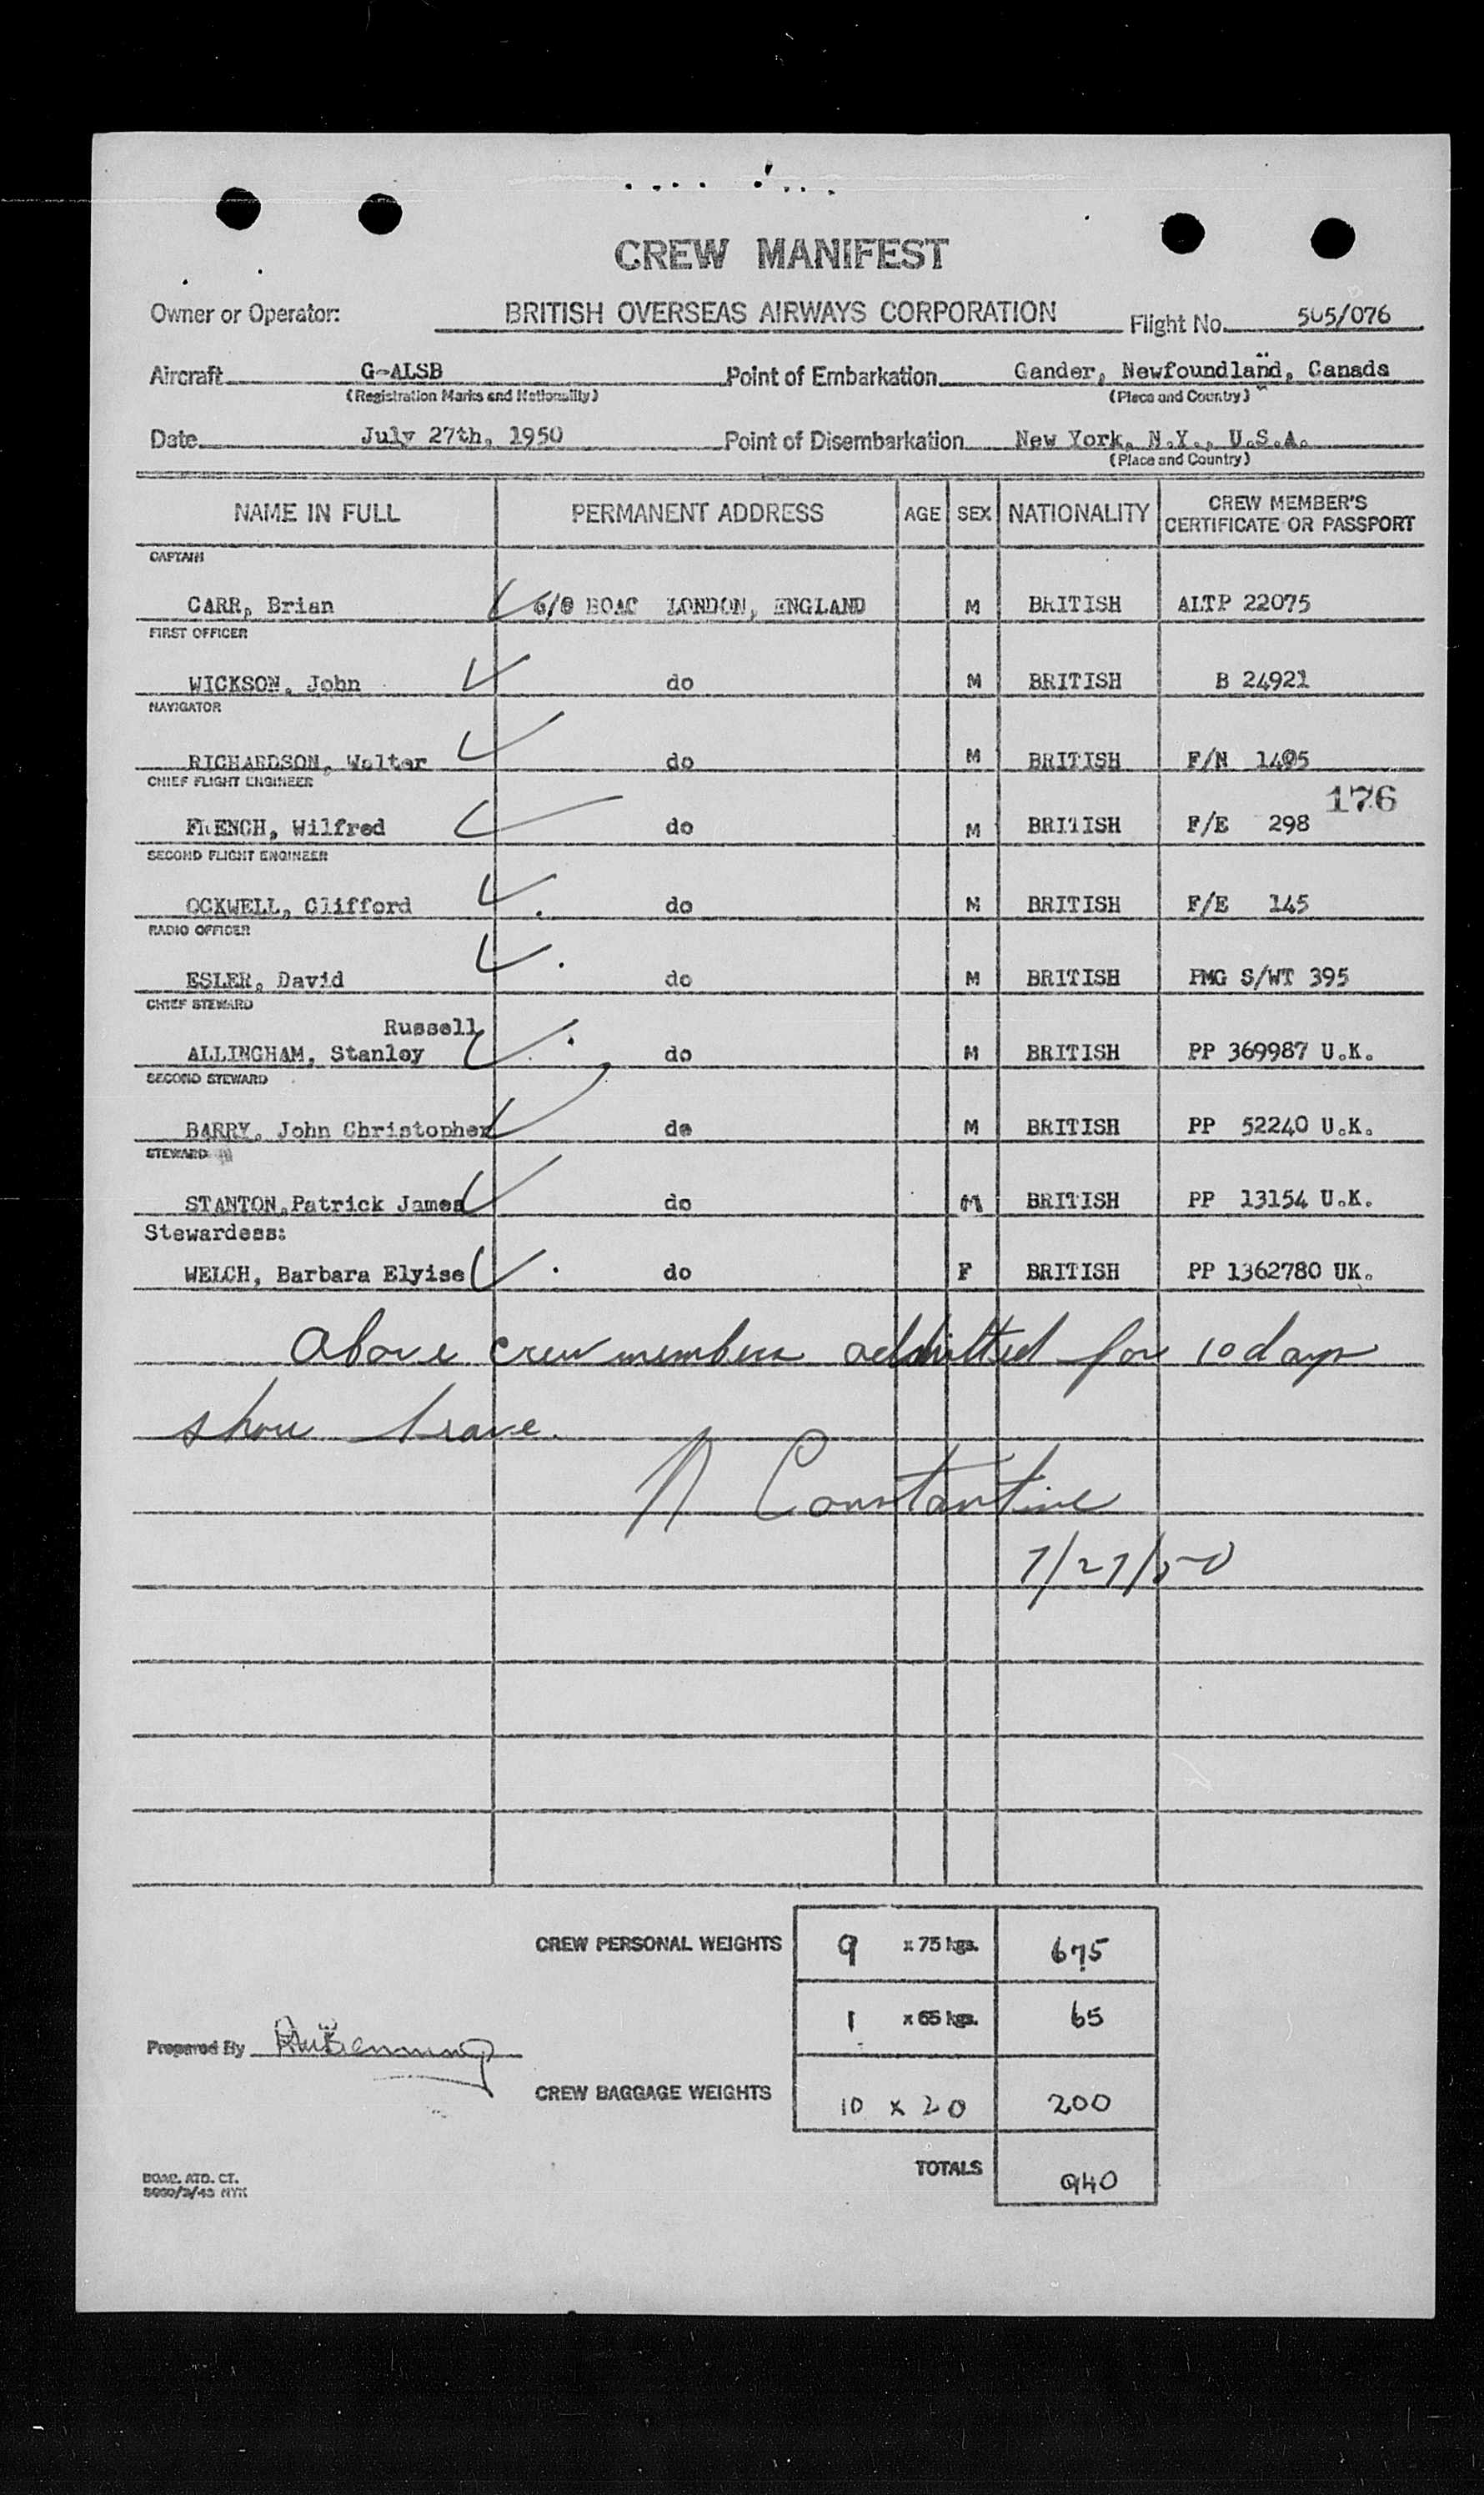 CREW MANIFEST
Owner or Operator: BRITISH OVERSEAS AIRWAYS CORPORATION Flight No. 505/076
Aircraft G-ALSB Point of Embarkation Gander, Newfoundland, Canada
(Registration Marks and Nationality) (Place and Country)
Date July 27th, 1950 Point of Disembarkation New York, N.Y., U.S.A.
(Place and Country)
NAME IN FULL PERMANENT ADDRESS AGE SEX NATIONALITY CREW MEMBER'S CERTIFICATE OR PASSPORT
CAPTAIN
CARR, Brian C/O BOAC LONDON, ENGLAND M BRITISH ALTP 22075
FIRST OFFICER
WICKSON, John do M BRITISH B 24921
NAVIGATOR
RICHARDSON, Walter do M BRITISH F/N 1405
CHIEF FLIGHT ENGINEER
176
FRENCH, Wilfred do M BRITISH F/E 298
SECOND FLIGHT ENGINEER
OCKWELL, Clifford do M BRITISH F/E 145
RADIO OFFICER
ESLER, David do M BRITISH PMG S/WT 395
CHIEF STEWARD
Russell
ALLINGHAM, Stanley do M BRITISH PP 369987 U.K.
SECOND STEWARD
BARRY, John Christopher do M BRITISH PP 52240 U.K.
STEWARD
STANTON,Patrick James do M BRITISH PP 13154 U.K.
Stewardess:
WELCH, Barbara Elyise do F BRITISH PP 1362780 UK.
Above crew members admitted for 10 days
shore leave.
N Constantine
7/27/50
CREW PERSONAL WEIGHTS 9 x 75 kgs. 675
1 x 65 kgs. 65
Prepared By
CREW BAGGAGE WEIGHTS 10 x 20 200
TOTALS 940
BOAC. ATD. CT.
NYK